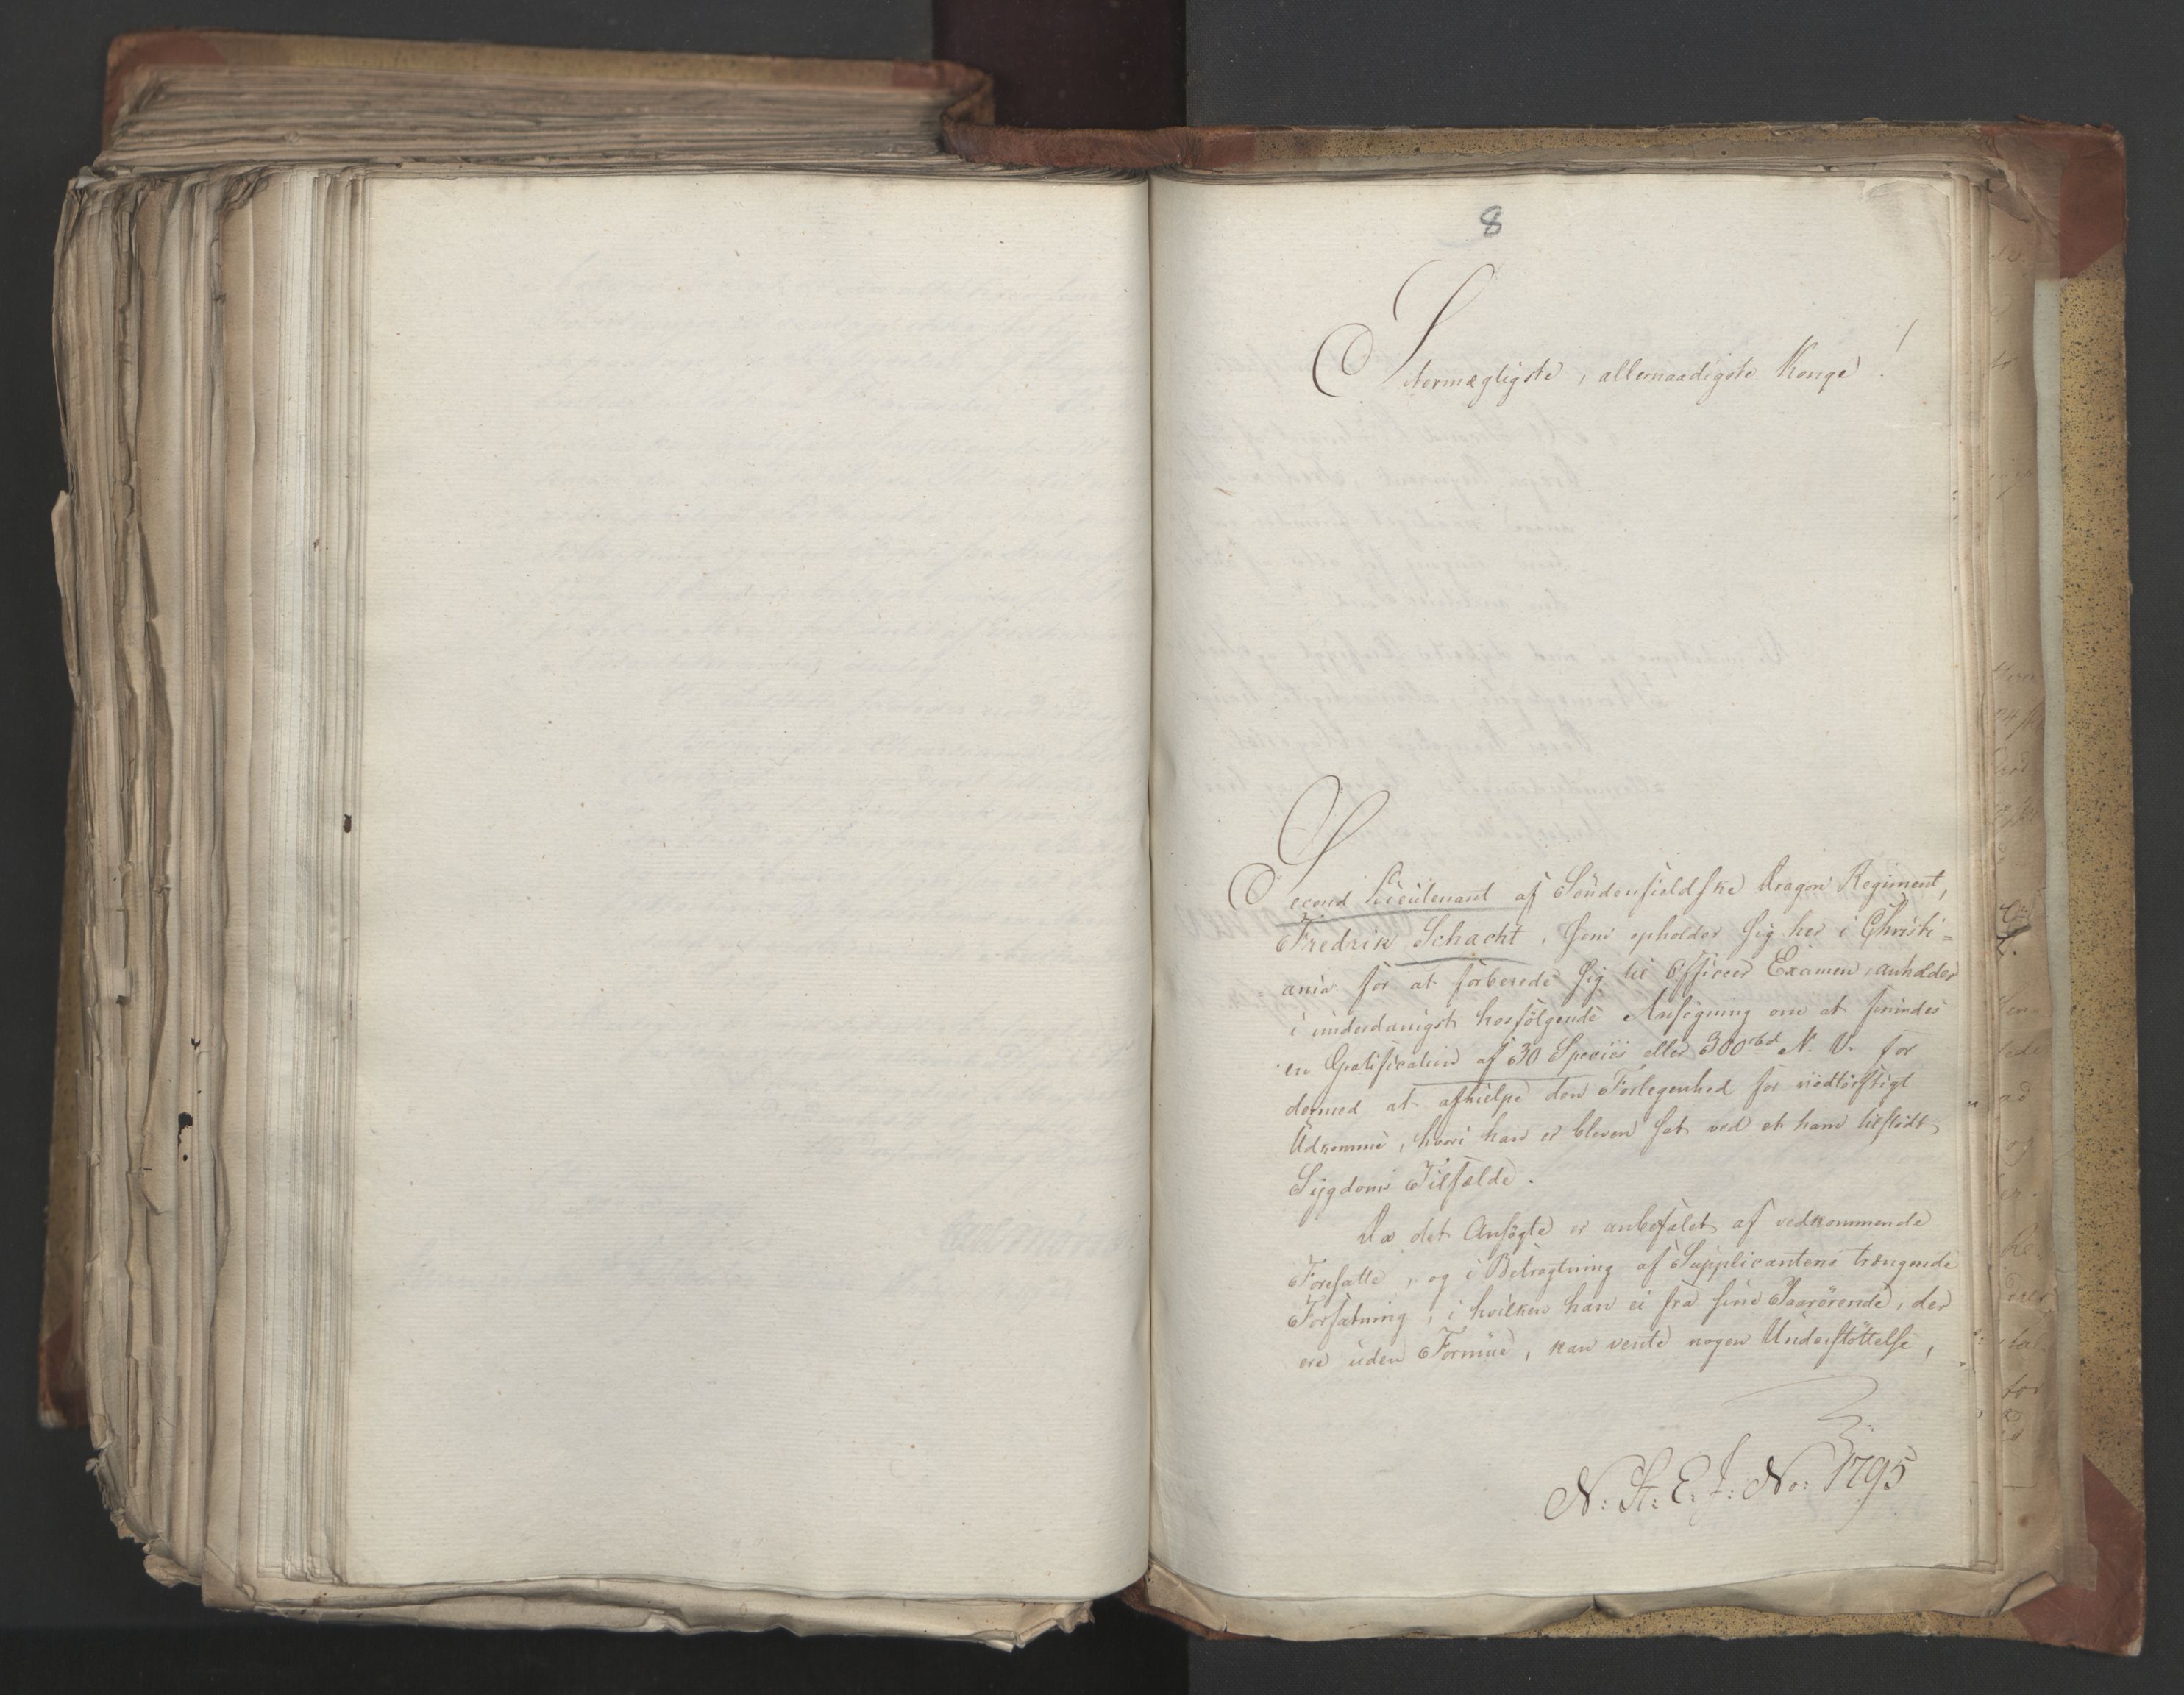 8
Stormægtigste, allernaadigste Konge!
Second Lieutenant af Söndenfieldske Dragon Regiment,
Fredrik Schacht, som opholder sig her i Christi-
ania for at forberede sig til Officeer Examen, anholder
i underdanigst hosfölgende Ansögning om at forundes
en Gratification af 30 Species eller 300 rbd N. V. for
dermed at afhielpe den Forlegenhed for nödtörftigt
Udkomme, hvori han er bleven sat ved et ham tilstödt
Sygdoms Tilfælde.
Da det Ansögte er anbefalet af vedkommende
Foresatte, og i Betragtning af Supplicantens trængende
Forfatning, i hvilken han ei fra sine Paarörende, der
ere uden Formue, kan vente nogen Understöttelse,
N: St: E: J: No: 1795